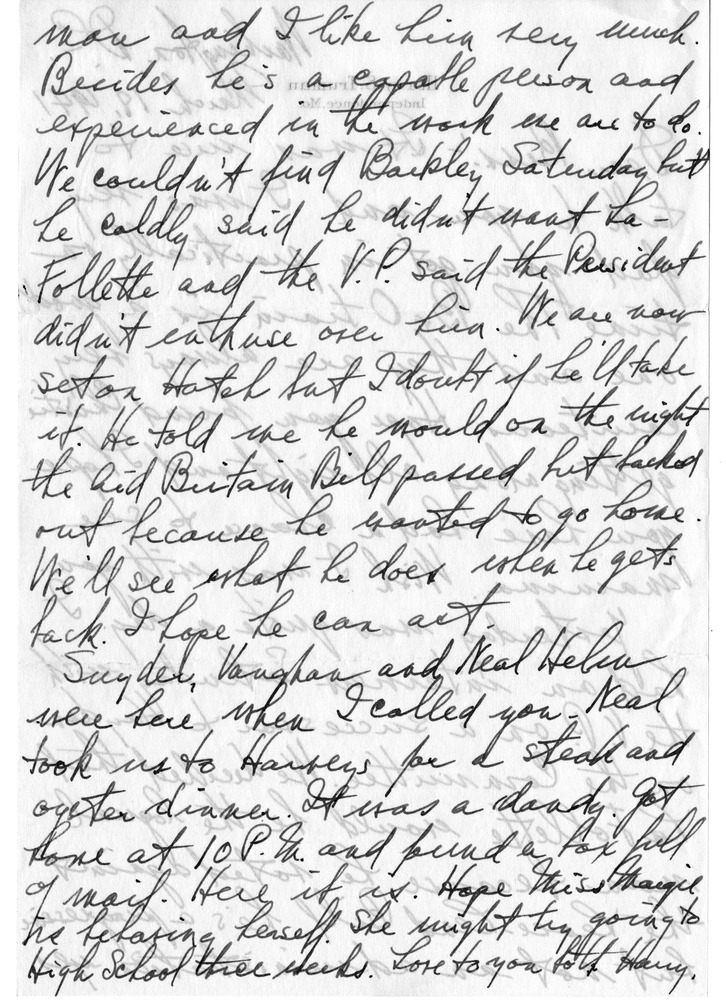 man and I like him very much.
Besides he's a capable person and
experienced in the work we are to do.
We couldn't find Barkley Saturday but
he coldly said he didn't want La-
Follette and the V.P. said the President
didn't enthuse over him. We are now
set on Hatch but I doubt if he'll take
it. He told me he would on the night
the Aid Britain Bill passed but backed
out because he wanted to go home.
We'll see what he does when he gets
back. I hope he can act.
Snyder, Vaughan and Neal Helm
were here when I called you. Neal
took us to Harveys for a steak and
oyster dinner. It was a dandy. Got
home at 10 P.M. and found a box full
of mail. Here it is. Hope Miss Margie
is behaving herself. She might try going to
High School three weeks. Love to you both Harry.